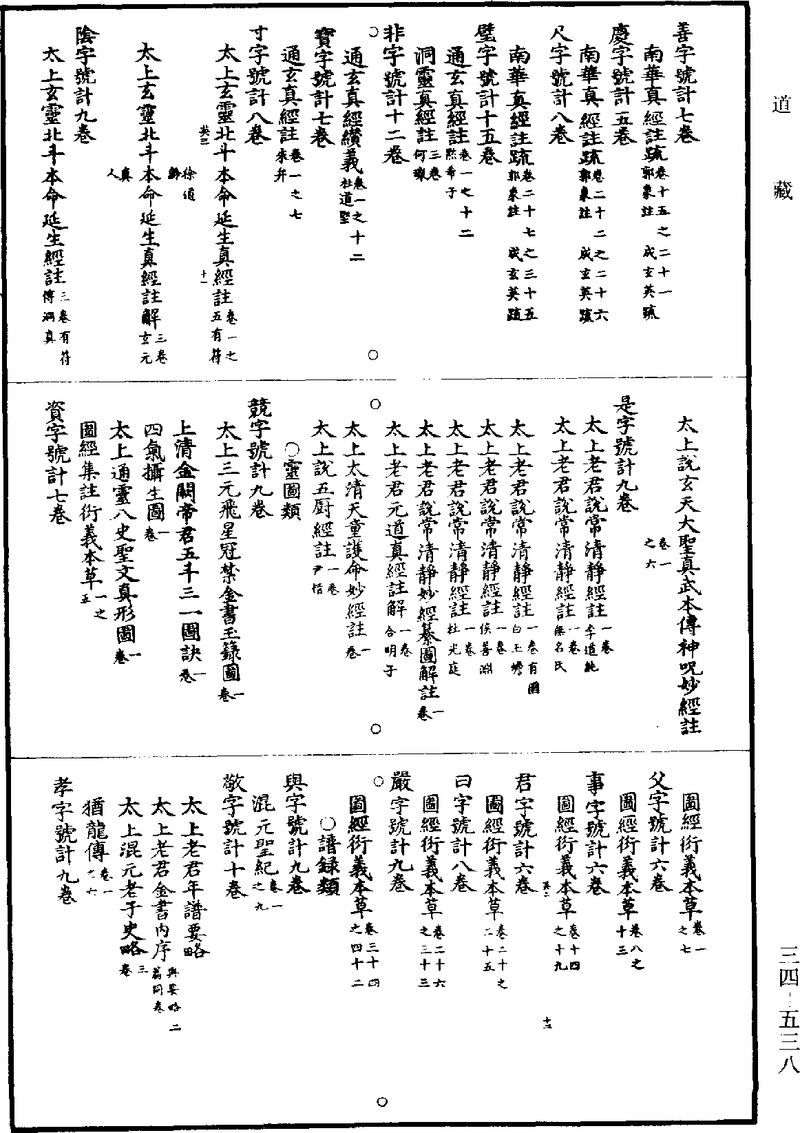 道藏
善字號計七卷
南華真經註疏卷十五之二十一 郭象註 成玄英疏
慶字號計五卷
南華真經註疏卷二十二之二十六 郭象註 成玄英疏
尺字號計八卷
南華真經註疏卷二十七之三十五 郭象註 成玄英疏
璧字號計十五卷
通玄真經註卷一之十二 默希子
洞靈真經註三卷 何璨
非字號計十二卷
通玄真經纘義卷一之十二 杜道堅
寶字號計七卷
通玄真經註卷一之七 朱弁
寸字號計八卷
太上玄靈北斗本命延生真經註卷一之五有符
英三 十一
太上玄靈北斗本命延生真經註解三卷 玄元真人
徐道齡
陰字號計九卷
太上玄靈北斗本命延生經註三卷有符 傅洞真
太上說玄天大聖真武本傳神呪妙經註卷一之六
是字號計九卷
太上老君說常清靜經註一卷 李道純
太上老君說常清靜經註一卷 無名氏
太上老君說常清靜經註一卷有圖 白玉蟾
太上老君說常清靜經註一卷 侯善淵
太上老君說常清靜經註一卷 杜光庭
太上老君說常清靜妙經纂圖解註一卷
太上老君元道真經註解一卷 合明子
太上太清天童護命妙經註一卷
太上說五厨經註一卷 尹愔
○靈圖類
競字號計九卷
太上三元飛星冠禁金書玉籙圖一卷
上清金闕帝君五斗三一圖訣一卷
四氣攝生圖一卷
太上通靈八史聖文真形圖一卷
圖經集註衍義本草一之五
資字號計七卷
圖經衍義本草卷一之七
父字號計六卷
圖經衍義本草卷八之十三
事字號計六卷
圖經衍義本草卷十四之十九
英二 十二
君字號計六卷
圖經衍義本草卷二十之二十五
曰字號計八卷
圖經衍義本草卷二十六之三十三
嚴字號計九卷
圖經衍義本草卷三十四之四十二
○譜錄類
與字號計九卷
混元聖紀卷一之九
敬字號計十卷
太上老君年譜要略
太上老君金書內序與要略二篇同卷
太上混元老子史略三卷
猶龍傳卷一之六
孝字號計九卷
三四－五三八